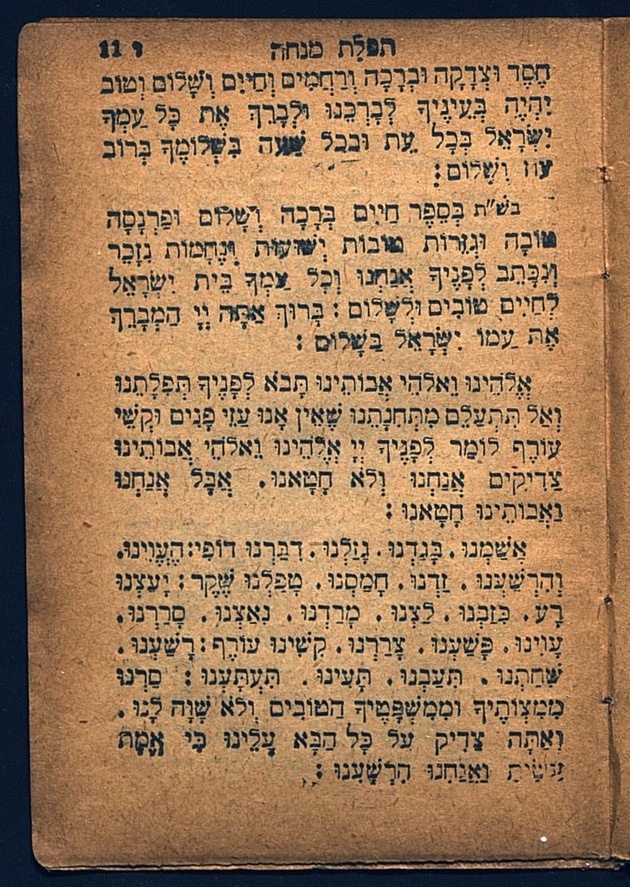 תפלת מנחה ו 11
חֶסֶד וּצְדָקָה וּבְרָכָה וְרַחֲמִים וְחַיִּים וְשָׁלוֹם וְטוֹב
יִהְיֶה בְּעֵינֶיךָ לְבָרְכֵנוּ וּלְבָרֵךְ אֶת כָּל עַמְּךָ
יִשְׂרָאֵל בְּכָל עֵת וּבְכָל שָׁעָה בִּשְׁלוֹמֶךָ בְּרוֹב
עוֹז וְשָׁלוֹם:
בש״ת בְּסֵפֶר חַיִּים בְּרָכָה וְשָׁלוֹם וּפַרְנָסָה
טוֹבָה וּגְזֵרוֹת טוֹבוֹת יְשׁוּעוֹת וְנֶחָמוֹת נִזָּכֵר
וְנִכָּתֵב לְפָנֶיךָ אֲנַחְנוּ וְכָל עַמְּךָ בֵּית יִשְׂרָאֵל
לְחַיִּים טוֹבִים וּלְשָׁלוֹם: בָּרוּךְ אַתָּה יְיָ הַמְבָרֵךְ
אֶת עַמּוֹ יִשְׂרָאֵל בַּשָּׁלוֹם:
אֱלֹהֵינוּ וֵאלֹהֵי אֲבוֹתֵינוּ תָּבֹא לְפָנֶיךָ תְּפִלָּתֵנוּ
וְאַל תִּתְעַלַּם מִתְּחִנָּתֵנוּ שֶׁאֵין אָנוּ עַזֵּי פָנִים וּקְשֵׁי
עוֹרֶף לוֹמַר לְפָנֶיךָ יְיָ אֱלֹהֵינוּ וֵאלֹהֵי אֲבוֹתֵינוּ
צַדִּיקִים אֲנַחְנוּ וְלֹא חָטָאנוּ. אֲבָל אֲנַחְנוּ
וַאֲבוֹתֵינוּ חָטָאנוּ:
אָשַׁמְנוּ. בָּגַדְנוּ. גָּזַלְנוּ. דִּבַּרְנוּ דוֹפִי: הֶעֱוִינוּ.
וְהִרְשַׁעְנוּ. זַדְנוּ. חָמַסְנוּ. טָפַלְנוּ שֶׁקֶר: יָעַצְנוּ
רָע. כִּזַּבְנוּ. לַצְנוּ. מָרַדְנוּ. נִאַצְנוּ. סָרַרְנוּ.
עָוִינוּ. פָּשַׁעְנוּ. צָרַרְנוּ. קִשִּׁינוּ עוֹרֶף: רָשַׁעְנוּ.
שִׁחַתְנוּ. תִּעַבְנוּ. תָּעִינוּ. תִּעְתָּעְנוּ: סַרְנוּ
מִמִּצְוֹתֶיךָ וּמִמִּשְׁפָּטֶיךָ הַטּוֹבִים וְלֹא שָׁוָה לָנוּ.
וְאַתָּה צַדִּיק עַל כָּל הַבָּא עָלֵינוּ כִּי אֱמֶת
עָשִׂיתָ וַאֲנַחְנוּ הִרְשָׁעְנוּ: